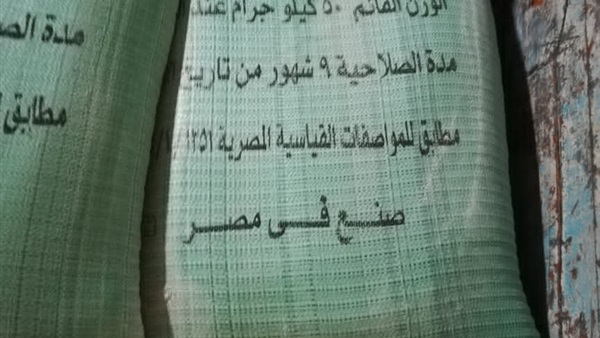 الوزن القائم ٥٠ كيلو جرام عند
مدة الصلاحية ٩ شهور من تاريخ
مطابق للمواصفات القياسية المصرية ١٢٥١
صنع فى مصر
مدة الصـ
مطابق